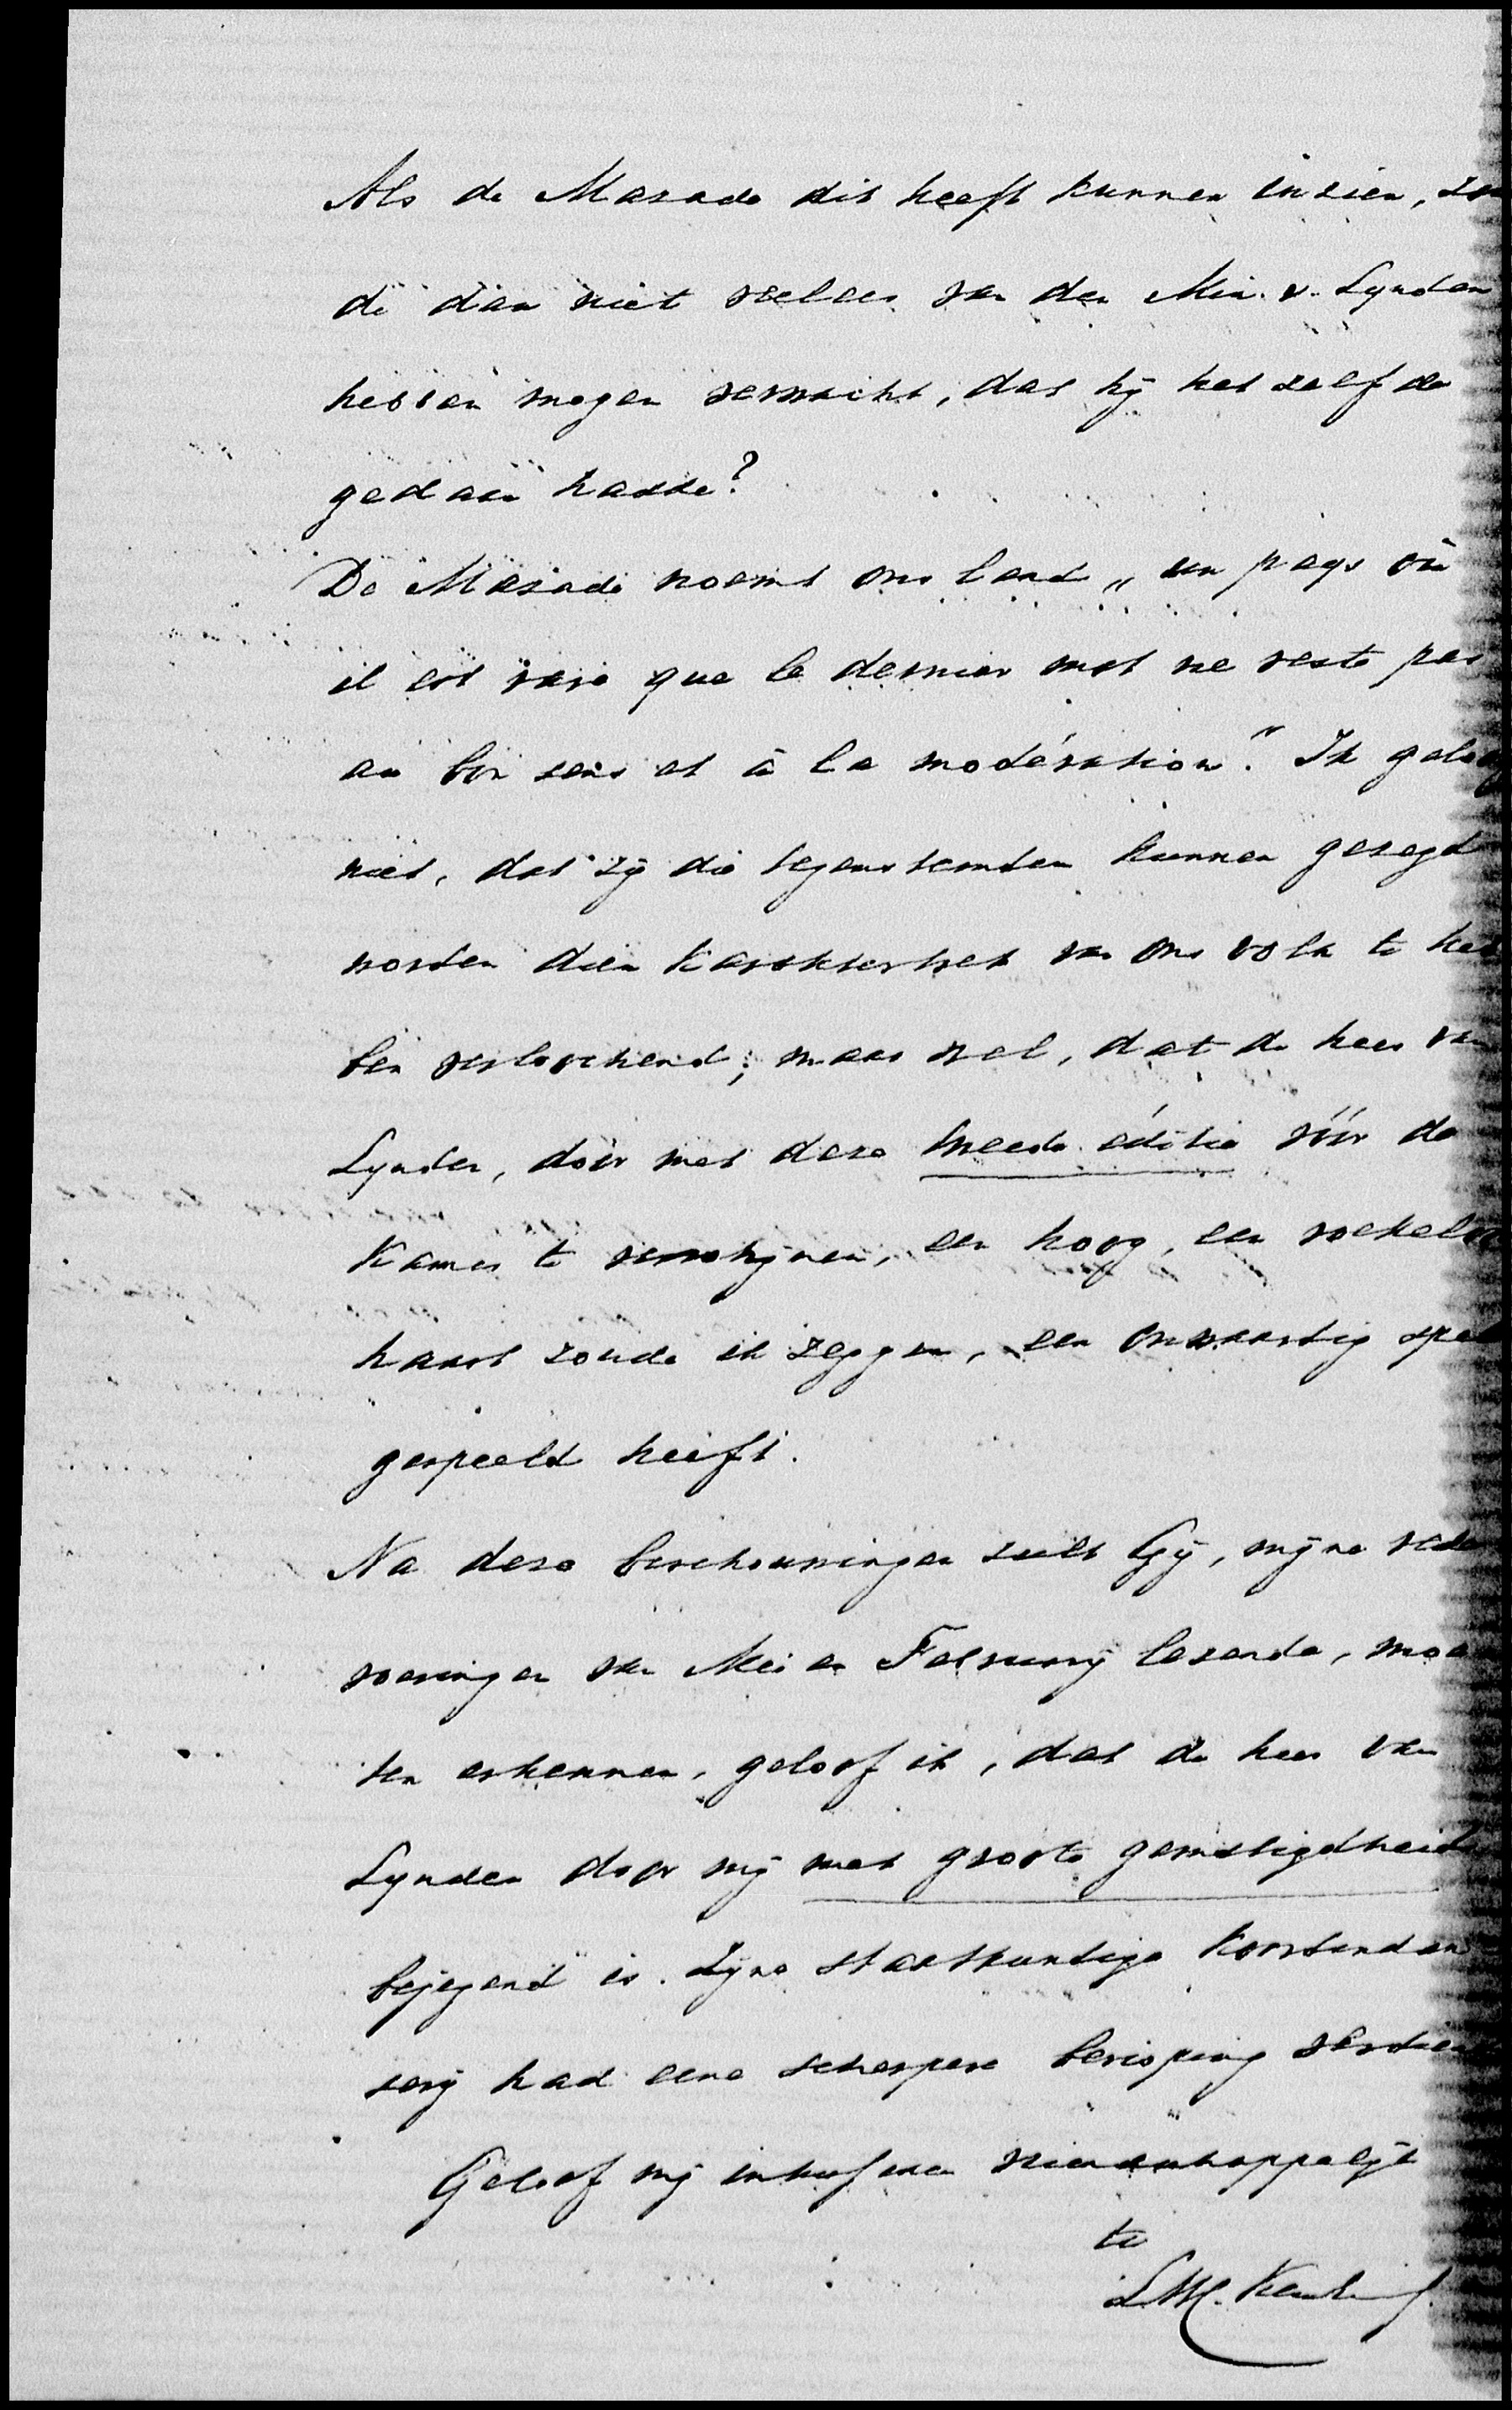 Als de Mazade dit heeft kunnen inzien, zou
de dan niet veeleer van den Min. v. Lynden
hebben mogen verwacht, dat hij het zelfde
gedaan hadde?
De Mazade noemt ons land „un pays où
il est rare que le dernier mot ne reste pas
au bon sens et à la modération". Ik geloof
niet, dat zij die tegenstemden kunnen gezegd
worden dien karaktertrek van ons volk te heb
ben verloochend; maar wel, dat de heer van
Lynden, door met deze tweede editie vóór de
Kamer te verschijnen, een hoog, een roekeloos
haast zoude ik zeggen, een onwaardig spel
gespeeld heeft.
Na deze beschouwingen zult Gij, mijne rede
voeringen van Mei en February lezende, moe
ten erkennen, geloof ik, dat de heer van
Lynden door mij met groote gematigdheid
bejegend is. Zijne staatkundige
had eene scherpere berisping verdiend
Geloof mij inhusschen vriendschappelijk
tt
L.W.C. Keuchenius